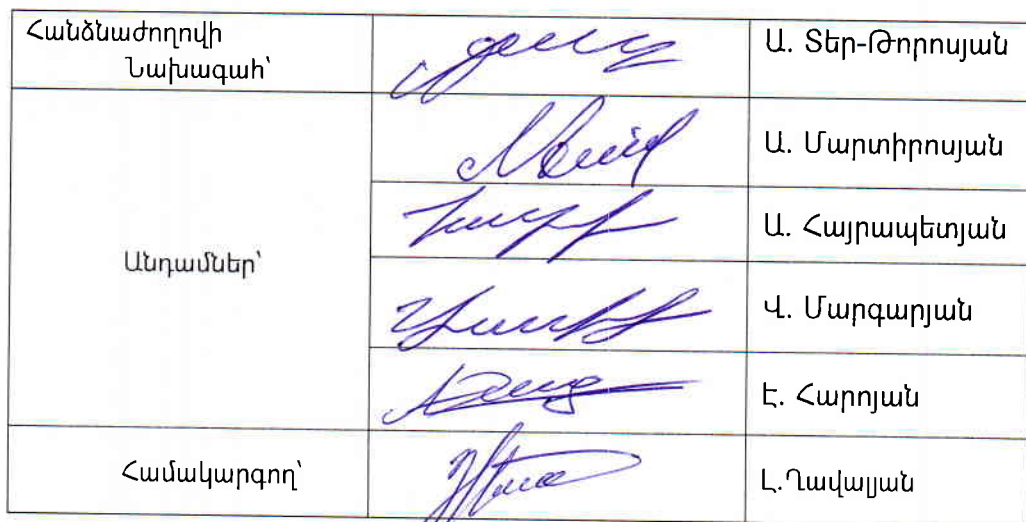 Հանձնաժողովի
Նախագահ՝
Ա. Տեր-Թորոսյան
Ա. Մարտիրոսյան
Ա. Հայրապետյան
Անդամներ՝
Վ. Մարգարյան
Է. Հարոյան
Համակարգող՝
Լ.Ղավալյան